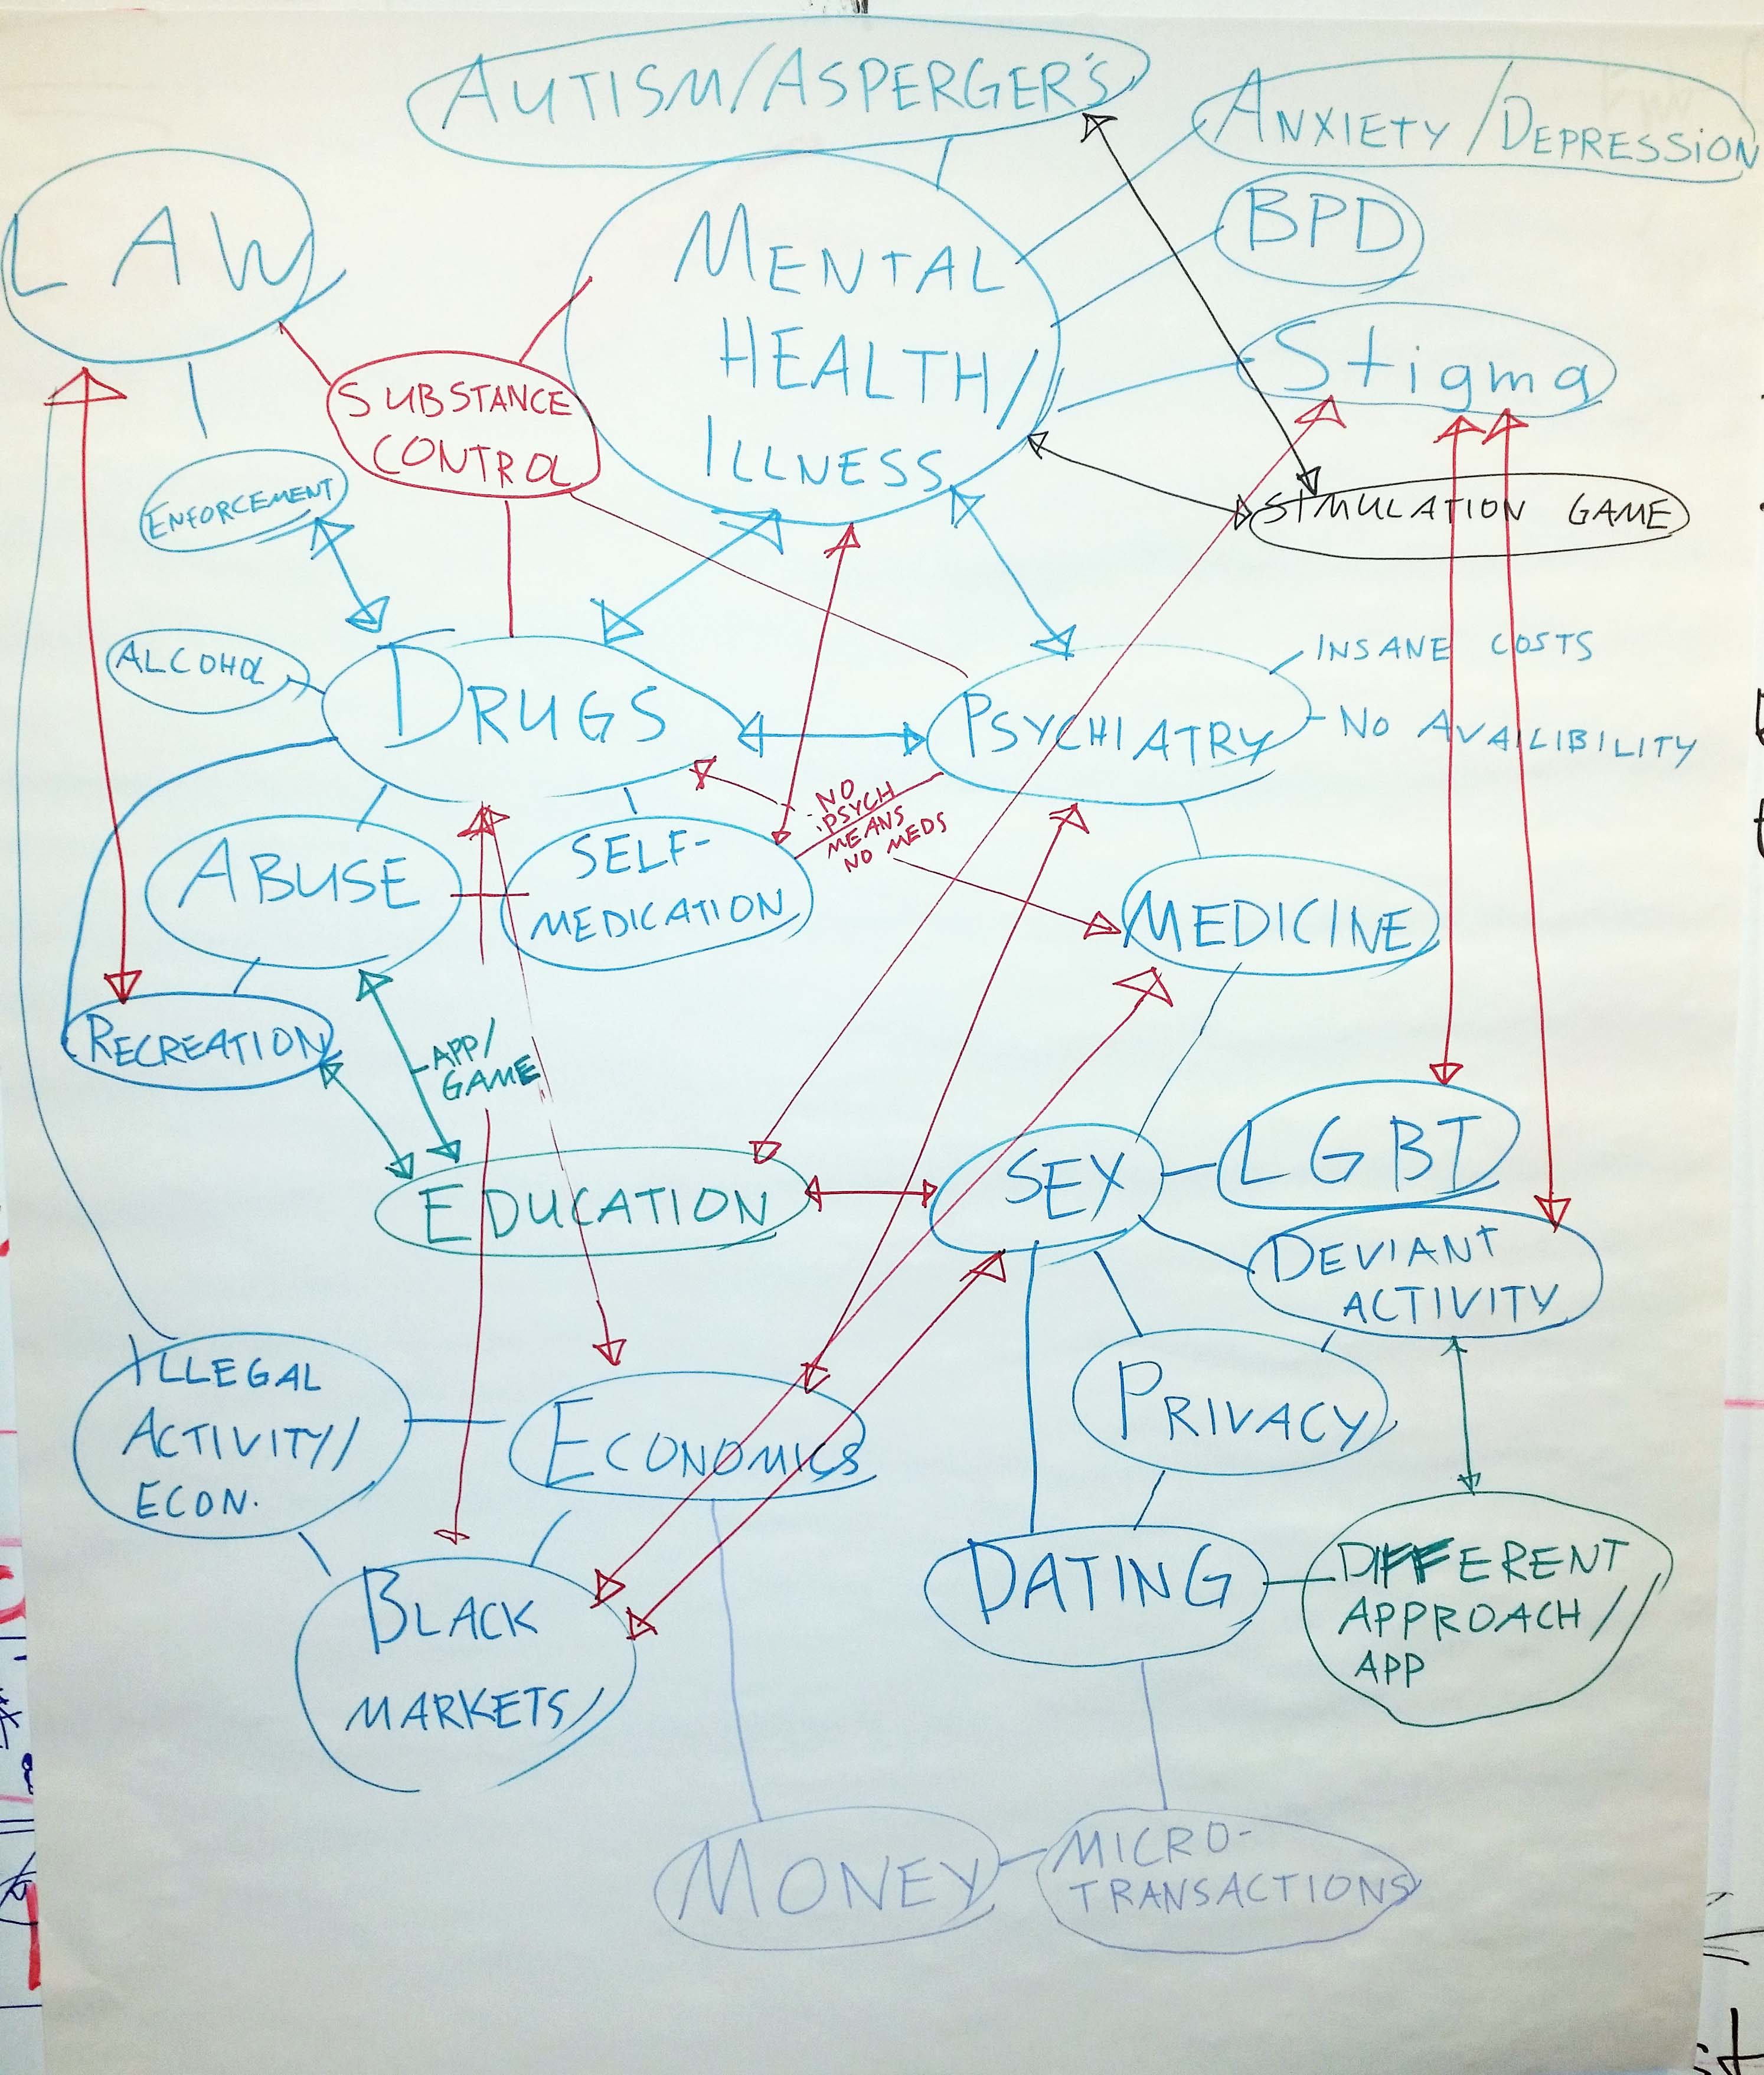 AUTISM/ASPERGER'S
ANXIETY/DEPRESSION
LAW
MENTAL
HEALTH/
ILLNESS
BPD
Stigma
SUBSTANCE
CONTROL
ENFORCEMENT
SIMULATION GAME
ALCOHOL
DRUGS
PSYCHIATRY
INSANE COSTS
NO AVAILIBILITY
NO
PSYCH
MEANS
NO MEDS
ABUSE
SELF-
MEDICATION
MEDICINE
RECREATION
APP/
GAME
EDUCATION
SEX
LGBT
DEVIANT
ACTIVITY
ILLEGAL
ACTIVITY/
ECON.
ECONOMICS
PRIVACY
BLACK
MARKETS
DATING
DIFFERENT
APPROACH/
APP
MONEY
MICRO-
TRANSACTIONS